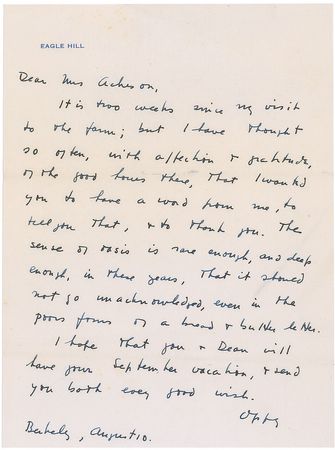 EAGLE HILL
Dear Mrs Acheson,
It is two weeks since my visit
to the farm; but I have thought
so often, with affection & gratitude,
of the good hours there, that I wanted
you to have a word from me, to
tell you that, & to thank you. The
sense of oasis is rare enough, and deep
enough, in these years, that it should
not go unacknowledged, even in the
poor form of a bread & butter letter.
I hope that you & Dean will
have your September vacation, & send
you both every good wish.
Oppy
Berkeley, August 10.